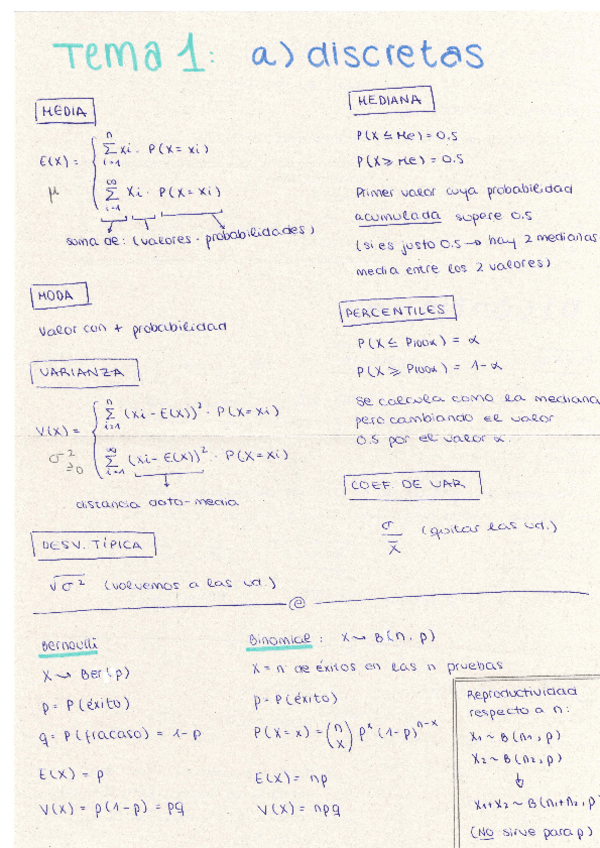 Tema 1: a) discretas
MEDIA
E(X) = { n Σ i=1 xi · P(X = xi)
μ ∞ Σ i=1 xi · P(X = xi)
suma de: (valores · probabilidades)
MODA
valor con + probabilidad
VARIANZA
V(X) = { n Σ i=1 (xi - E(X))² · P(X = xi)
σ² ≥0 ∞ Σ i=1 (xi - E(X))² · P(X = xi)
distancia dato-media
DESV. TÍPICA
√σ² (volvemos a las ud.)
MEDIANA
P(X ≤ Me) = 0.5
P(X ≥ Me) = 0.5
Primer valor cuya probabilidad
acumulada supere 0.5
(si es justo 0.5 → hay 2 medianas
media entre los 2 valores)
PERCENTILES
P(X ≤ P100α) = α
P(X ≥ P100α) = 1-α
se calcula como la mediana
pero cambiando el valor
0.5 por el valor α.
COEF. DE VAR.
σ / x̄ (quitar las ud.)
Bernoulli
X ⇝ Ber(p)
p = P(éxito)
q = P(fracaso) = 1-p
E(X) = p
V(X) = p(1-p) = pq
Binomial: X ⇝ B(n, p)
X = nº de éxitos en las n pruebas
p = P(éxito)
P(X = x) = (n x) pˣ (1-p)ⁿ⁻ˣ
E(X) = np
V(X) = npq
Reproductividad
respecto a n:
X1 ~ B(n1, p)
X2 ~ B(n2, p)
↓
X1+X2 ~ B(n1+n2, p)
(NO sirve para p)